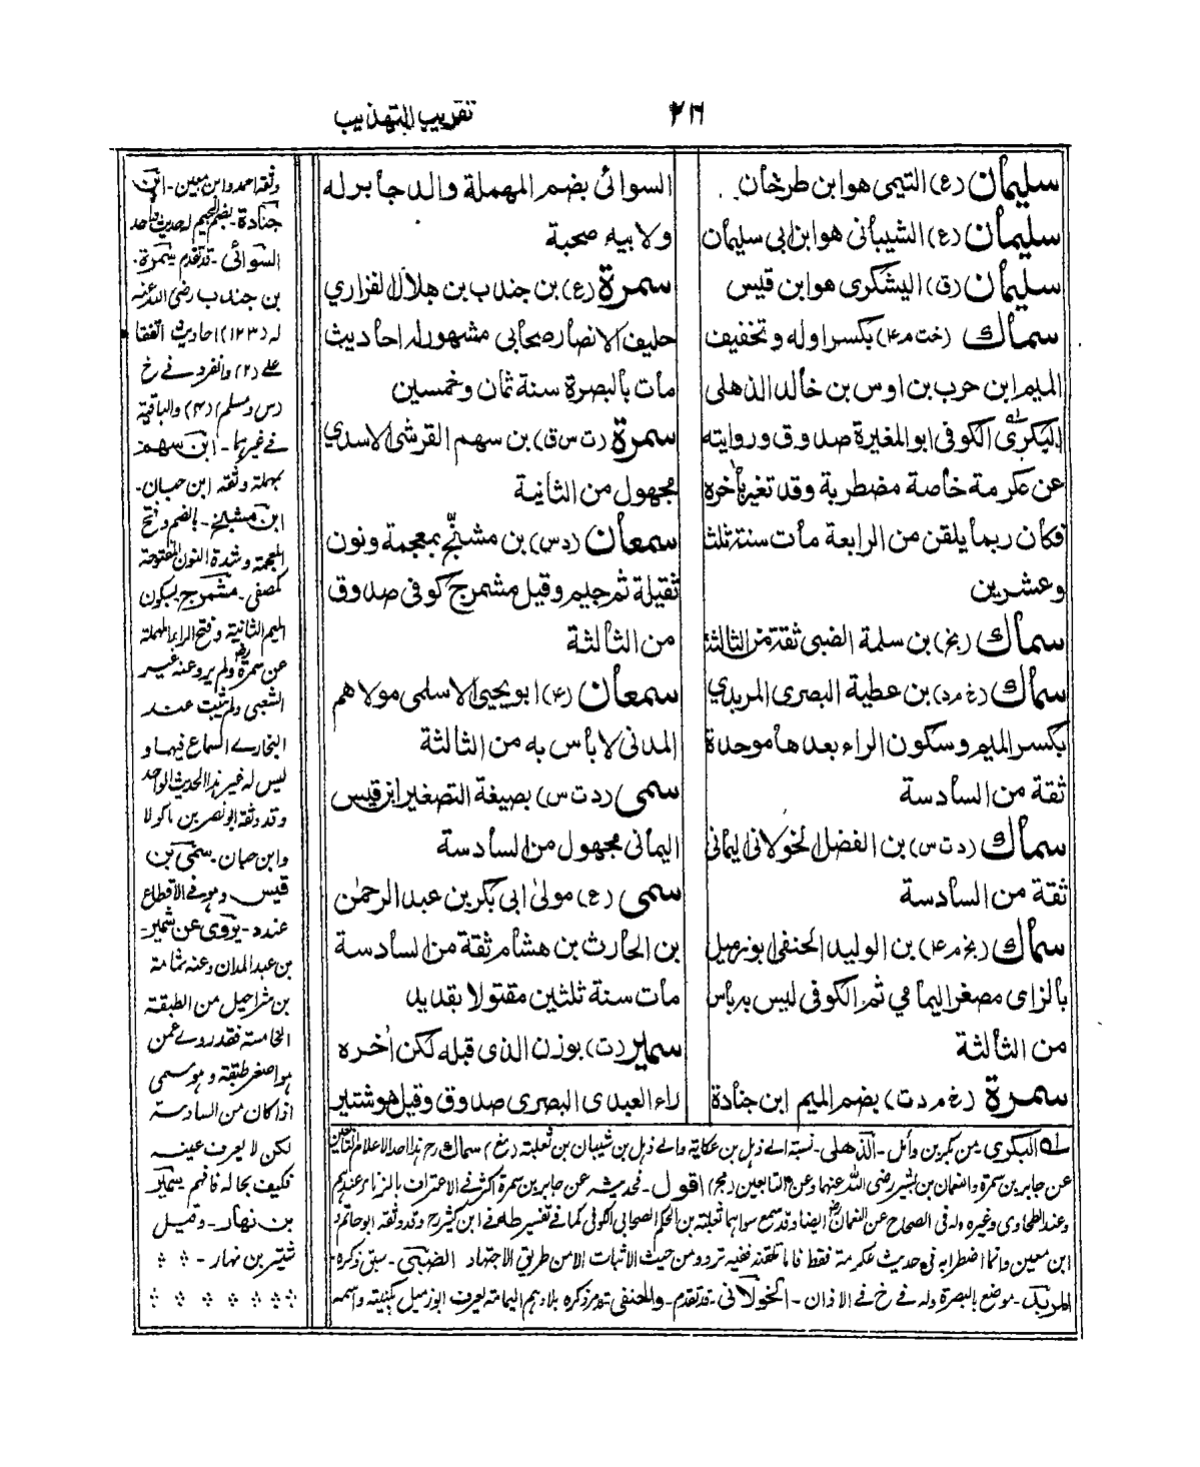 تقريب التهذيب
سليمان (ع) التيمى هو ابن طرخان
سليمان (ع) الشيبانى هو ابن ابى سليمان
سليمان (ق) اليشكرى هو ابن قيس
سماك (خت م ۴) بكسر اوله وتخفيف
الميم ابن حرب بن اوس بن خالد الذهلى
البكرى الكوفى ابو المغيرة صدوق وروايته
عن عكرمة خاصة مضطربة وقد تغير بأخره
فكان ربما يلقن من الرابعة مات سنة ثلث
وعشرين
سماك (بخ) بن سلمة الضبى ثقة من الثالثة
سماك (خ م د) بن عطية البصرى المربدي
بكسر الميم وسكون الراء بعدها موحدة
ثقة من السادسة
سماك (د ت س) بن الفضل الخولانى اليمانى
ثقة من السادسة
سماك (بخ م ۴) بن الوليد الحنفى ابو زميل
بالزاى مصغر اليمامي ثم الكوفى ليس به بأس
من الثالثة
سمرة (خ م د ت) بضم الميم ابن جنادة
السوائى بضم المهملة والد جابر له
ولابيه صحبة
سمرة (ع) بن جندب بن هلال الفزاري
حليف الانصار صحابى مشهور له احاديث
مات بالبصرة سنة ثمان وخمسين
سمرة (ت س ق) بن سهم القرشى الاسدي
مجهول من الثانية
سمعان (د س) بن مشنّج بمعجمة ونون
ثقيلة ثم جيم وقيل مشمرج كوفى صدوق
من الثالثة
سمعان (۴) ابو يحيى الاسلمى مولاهم
المدنى لا بأس به من الثالثة
سمى (د ت س) بصيغة التصغير ابن قيس
اليمانى مجهول من السادسة
سمى (ع) مولى ابى بكر بن عبد الرحمن
بن الحارث بن هشام ثقة من السادسة
مات سنة ثلثين مقتولا بقديد
سمير (ت) بوزن الذى قبله لكن أخره
راء العبدى البصرى صدوق وقيل هو شتير
وثقه احمد وابن معين - ابن
جنادة - بضم الجيم له حديث واحد
السوائى - قد تقدم سمرة -
بن جندب رضى الله عنه
له (۱۲۳) احاديث اتفقا
على (۲) وانفرد فى خ
ومسلم (۴) والباقية
فى غيرهما - ابن سهم
بمهملة وثقه ابن حبان -
ابن مشنج - بالضم وفتح
المعجمة وشدة النون المفتوحة
كمصفى - مشمرج بسكون
الميم الثانية وفتح الراء المهملة
عن سمرة ولم يرو عنه غير
الشعبى ولم يثبت عند
البخارى السماع فيها و
ليس له غير هذا الحديث الواحد
وقد وثقه ابو نصر بن ماكولا
وابن حبان - سمى بن
قيس وهو فى الاقطاع
عنده - يروى عن شمير -
بن عبد المدان وعنه ثمامة
بن شراحيل من الطبقة
الخامسة فقد روى عمن
هو اصغر طبقة وهو سمى
اذا كان من السادسة
لكن لا يعرف عينه
فكيف بحاله فافهم سمير
بن نهار - وقيل
شتير بن نهار -
له البكرى من بكر بن وائل - الذهلى - نسبة الى ذهل بن عكابة والى ذهل بن شيبان بن ثعلبة سماك رح هذا احد الاعلام التابعين
عن جابر بن سمرة والنعمان بن بشير رضى الله عنهما وعن التابعين اقول - فحديثه عن جابر بن سمرة اكثر فى الاعتراف بالزنا عندهم
وعند الطحاوى وغيره وله فى الصحاح عن النعمان ايضا وقد سمع سواهما ثعلبة بن الحكم الصحابى الكوفى كما فى تفسير طه فى ابن كثير رح وقد وثقه ابو حاتم و
ابن معين وانما اضطرابه فى حديث عكرمة فقط فاما تلقنه ففيه تردد من حيث الاثبات الا من طريق الاجتهاد الضبى - سبق ذكره -
المربد - موضع بالبصرة وله فى خ فى الاذان - الخولانى - قد تقدم - والحنفى قد مر ذكره بلادهم اليمامة يعرف ابو زميل بكنيته واسمه